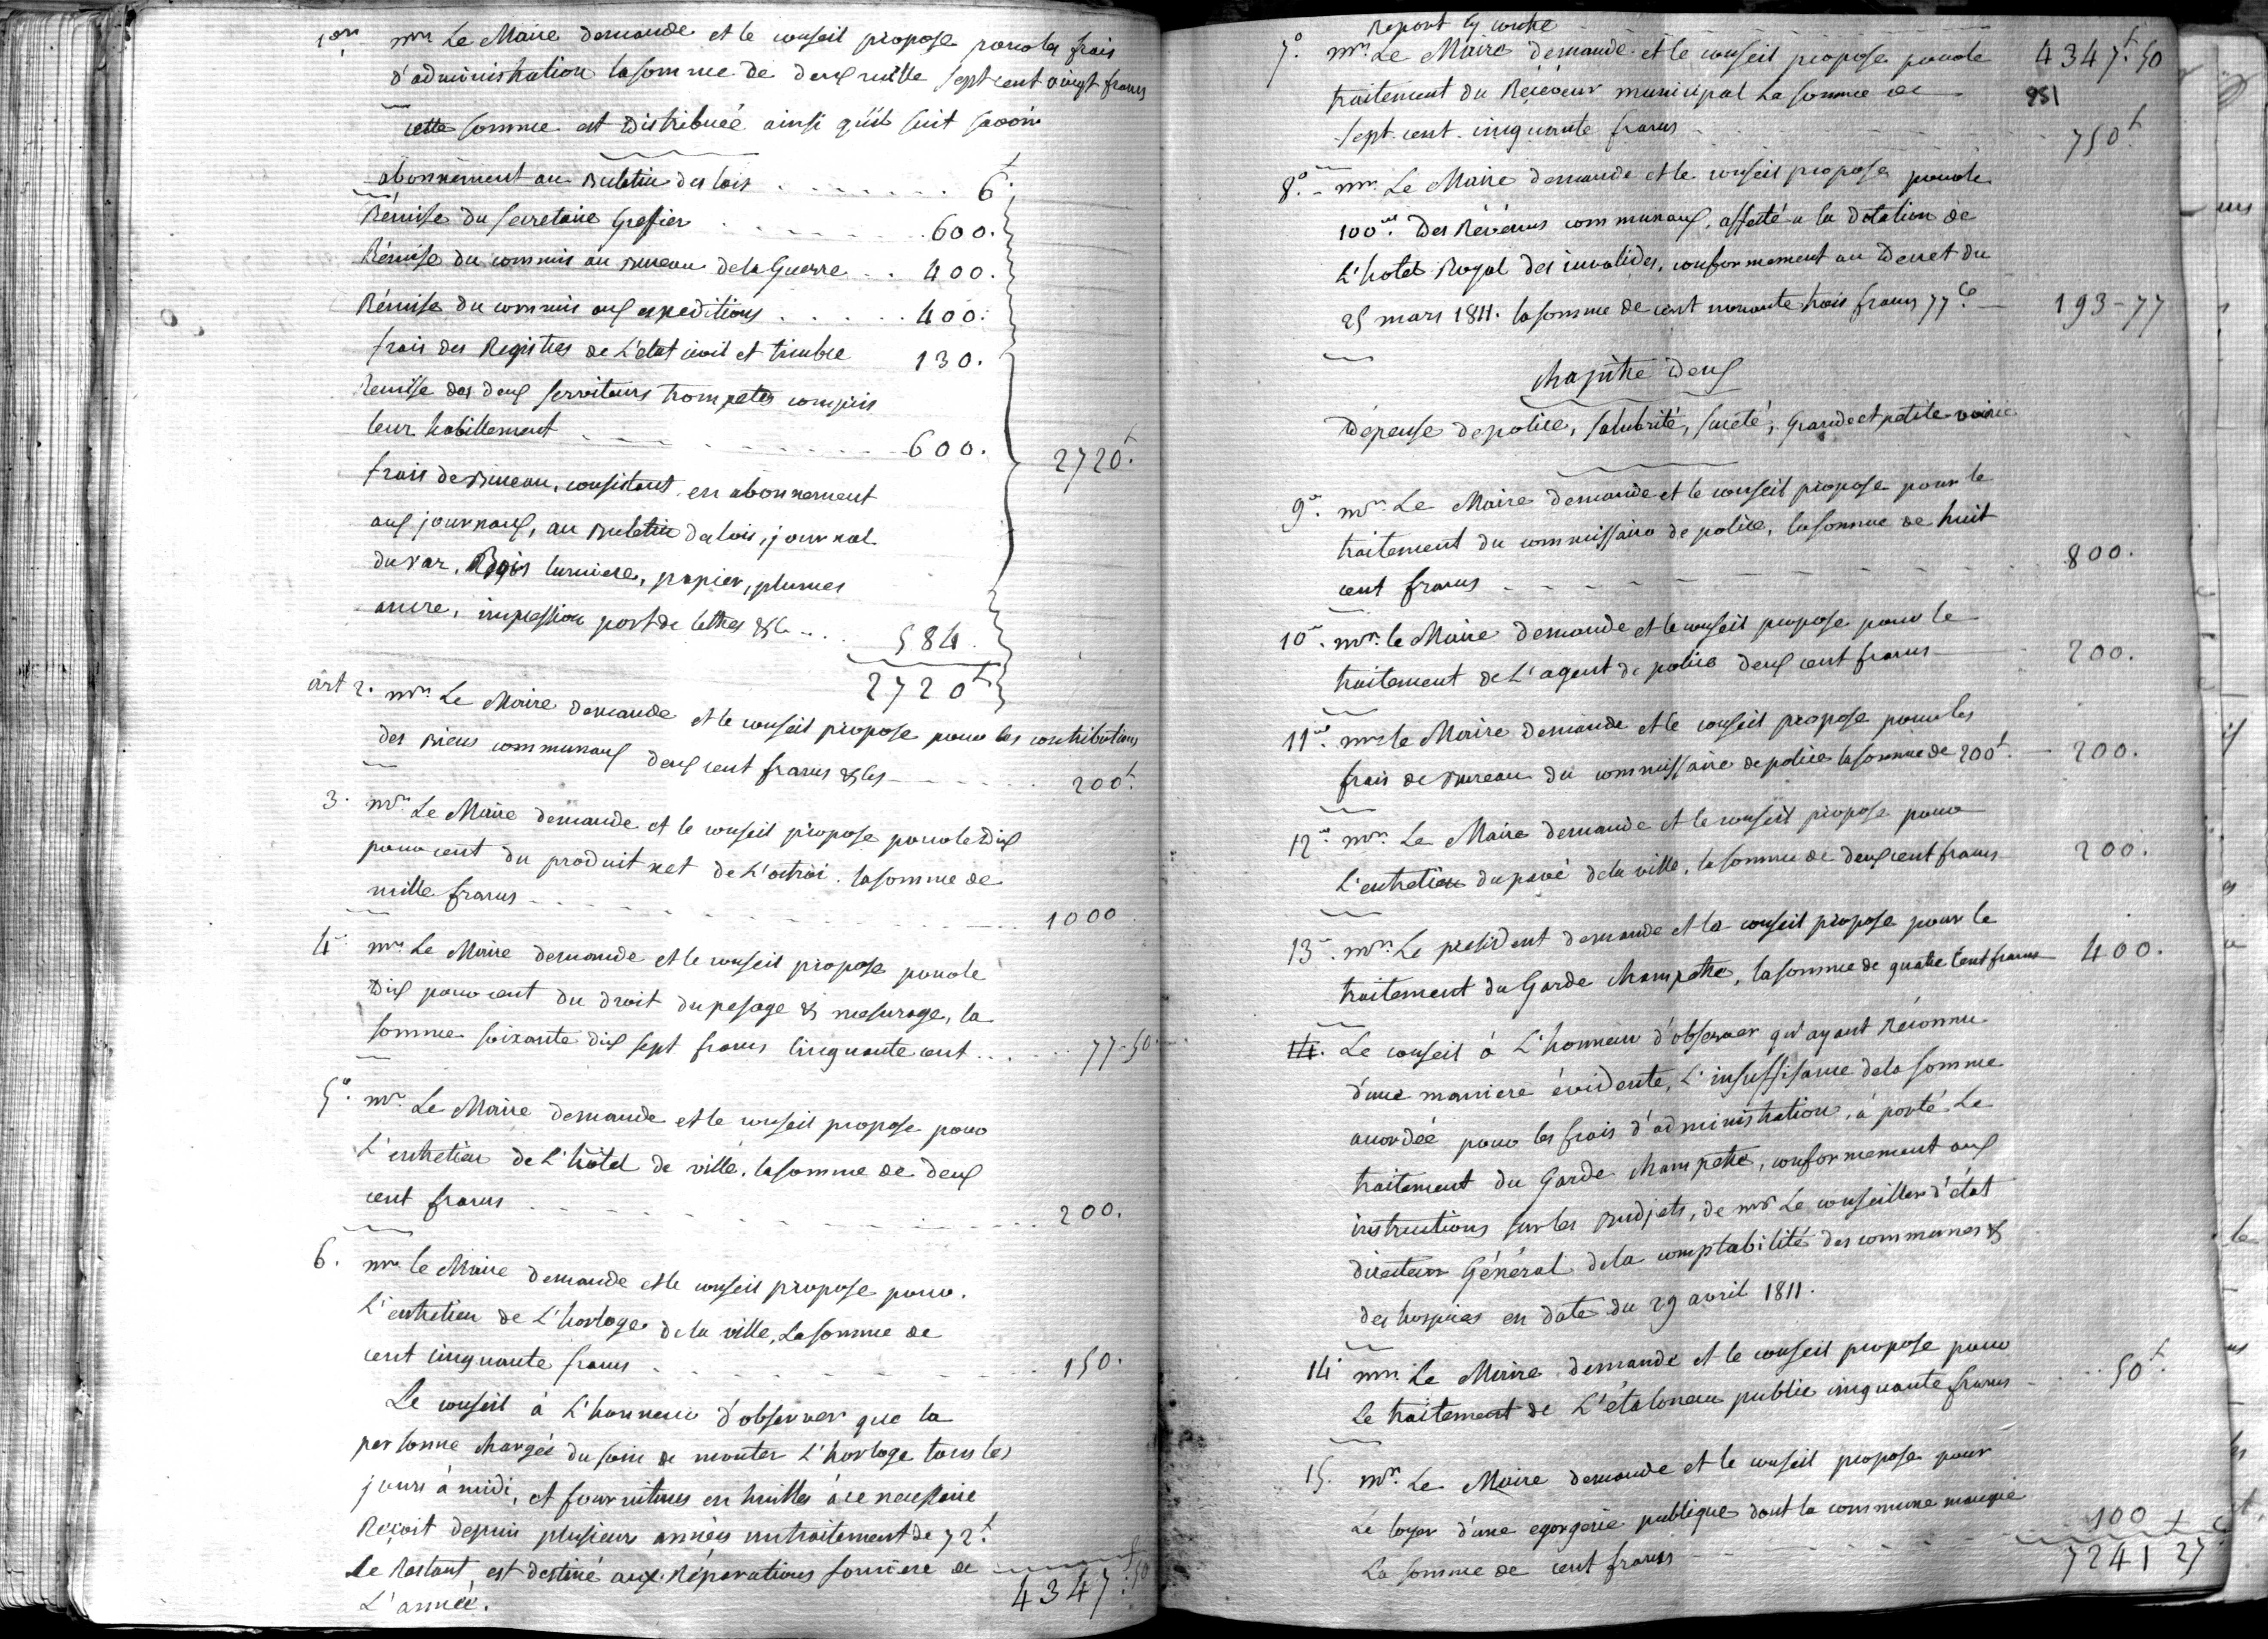 1er. mr. Le Maire demande et le conseil propose pour les frais
d'administration la somme de deux mille sept cent vingt francs
cette somme est distribueé ainsi qu'il suit savoir
abonnement au Buletin des lois . . . . . . . 6 f.
Rémise du secretaire Greffier . . . . . . . 600.
Rémise du commis au Bureau de la Guerre . . 400.
Rémise du commis aux expeditions . . . . . 400.
frais des Registres de L'etat civil et timbre 130.
Remise des deux serviteurs trompetes compris
leur habillement . . . . . . . 600.
2720 f.
frais de Bureau, consistant en abonnement
aux journaux, au Buletin des lois, journal
du var, Bois lumiere, papier, plumes
ancre, impression port de lettres &c . . . 584.
2720 f
art 2. mr. Le Maire demande et le conseil propose pour les contributions
des Biens communaux deux cent francs &c 200 f.
3. mr. Le Maire demande et le conseil propose pour le dix
pour cent du produit net de L'octroi. la somme de
mille francs 1000.
4. mr. Le Maire demande et le conseil propose pour le
dix pour cent du droit du pesage & mesurage, la
somme soixante dix sept francs cinquante cent . . . 77-50.
5°. mr. Le Maire demande et le conseil propose pour
L'entretien de L'hôtel de ville. la somme de deux
cent francs 200.
6. mr. le Maire demande et le conseil propose pour.
L'entretien de L'horloge de la ville, La somme de
cent cinquante francs 150.
Le conseil à L'honneur d'observer que la
personne chargée du soin de monter L'horloge tous les
jours à midi, et fournitures en huilles à ce necessaire
Reçoit depuis plusieurs années un traitement de 72 f.
Le Restant est destiné aux Réparations fonciere de
L'année.
4347 f. 50
Report cy contre
4347 f. 50
7°. mr. Le Maire demande et le conseil propose pour le
traitement du Réceveur municipal La somme de
951
sept cent cinquante francs 750 f.
8°. mr. Le Maire demande et le conseil propose pour le
100e. des Révenus communaux, affecté a la dotation de
L'hotel Royal des invalides, conformement au Decret du
25 mars 1811. la somme de cent nonante trois francs 77 c. 193-77
chapitre deux
Dépense de police, salubrité, sureté, Grande et petite voirie
9°. mr. Le Maire demande et le conseil propose pour le
traitement du commissaire de police, la somme de huit
cent francs 800.
10°. mr. le Maire demande et le conseil propose pour le
traitement de L'agent de police deux cent francs 200.
11e. mr. le Maire demande et le conseil propose pour les
frais de Bureau du commissaire de police la somme de 200 f. 200.
12e. mr. Le Maire demande et le conseil propose pour
L'entretien du pavé de la ville, la somme de deux cent francs 200.
13. mr. Le president demande et le conseil propose pour le
traitement du Garde champetre, la somme de quatre cent francs 400.
14. Le conseil à L'honneur d'observer qu'ayant Réconnu
d'une maniere évidente, L'insuffisance de la somme
accordée pour les frais d'administration, à porté Le
traitement du Garde champetre, conformement aux
instructions sur les Budjets, de mr. Le conseiller d'état
directeur Général de la comptabilité des communes &
des hospices en date du 29 avril 1811.
14. mr. Le Maire demande et le conseil propose pour
Le traitement de L'étaloneur public cinquante francs 50 f.
15. mr. Le Maire demande et le conseil propose pour
Le loyer d'une egorgerie publique dont la commune manque
La somme de cent francs 100
7241 f 27 c